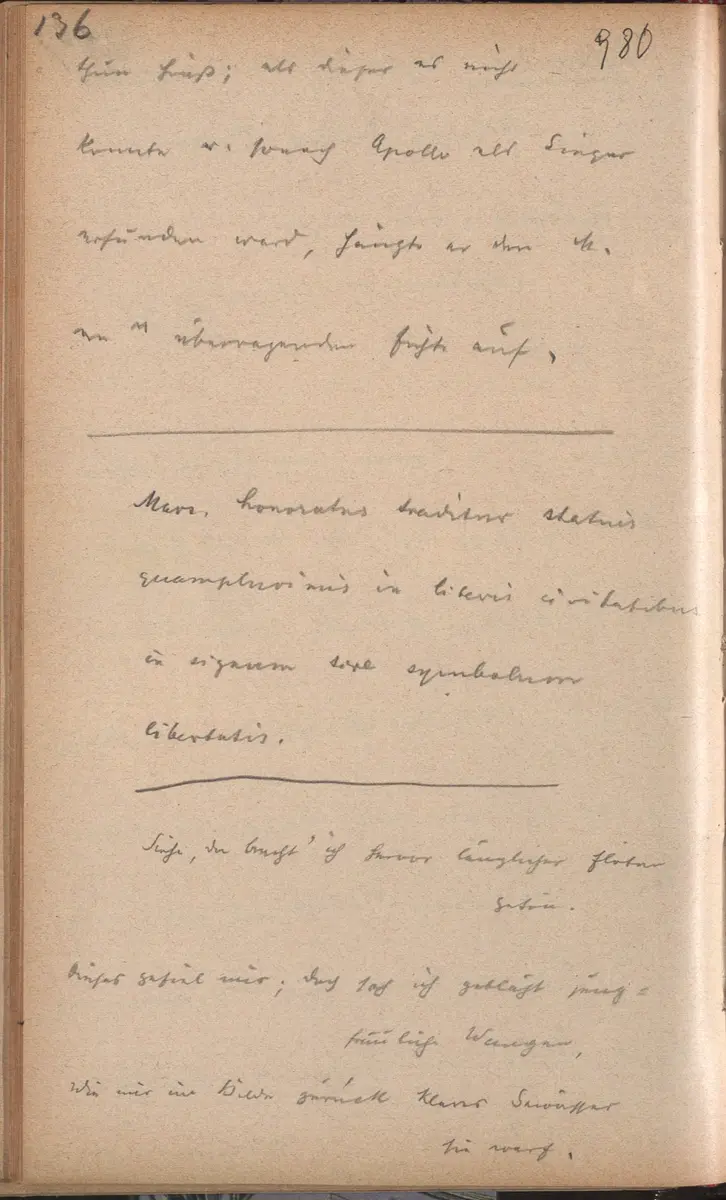 136
980
thun hieß; als dieser es nicht
konnte u. sonach Apollo als Sieger
erfunden ward, hängte er den M.
an überragenden Fichte auf.
Mars. honoratus traditur statuis
quamplurimis in liberis civitatibus
in signum sive symbolum
libertatis.
Siehe, da bracht' ich hervor länglicher Flöten
getön.
Dieses gefiel mir; doch sah ich gebläht jung=
fräuliche Wangen,
wie mir im Bilde zurück klares Gewässer
sie warf.